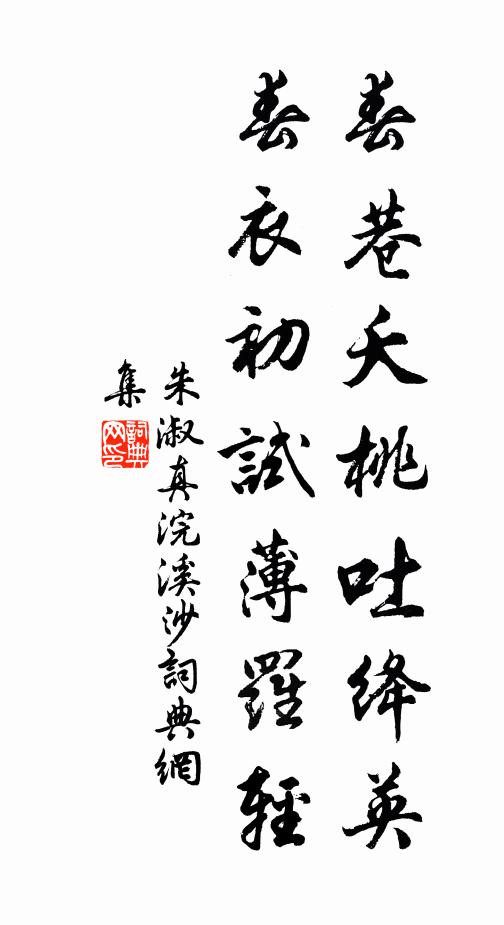 春巷夭桃吐絳英
春衣初試薄羅輕
朱淑真浣溪沙詞典網
集
詞典网印